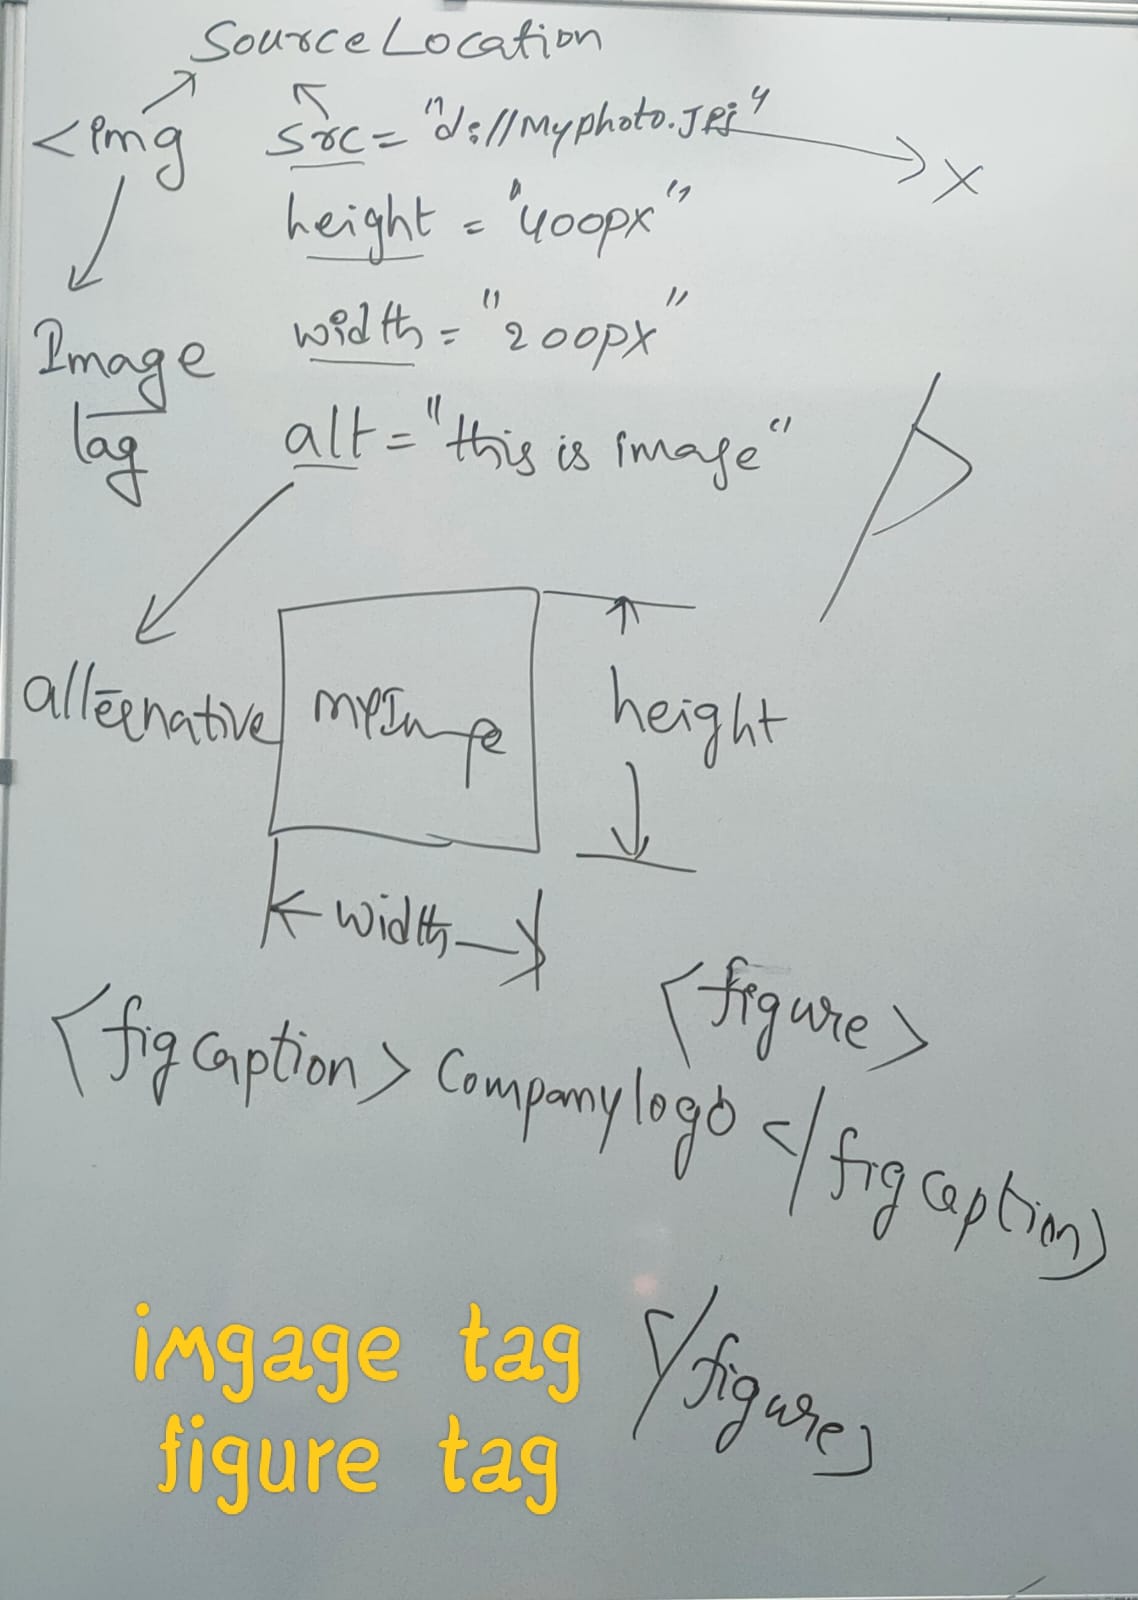 Source Location
<img src="d://Myphoto.JPG" x
height = "400px"
width = "200px"
Image
tag
alt = "this is image"
alternative
height
width
<figure>
<figcaption> Company logo </figcaption>
</figure>
imgage tag
figure tag